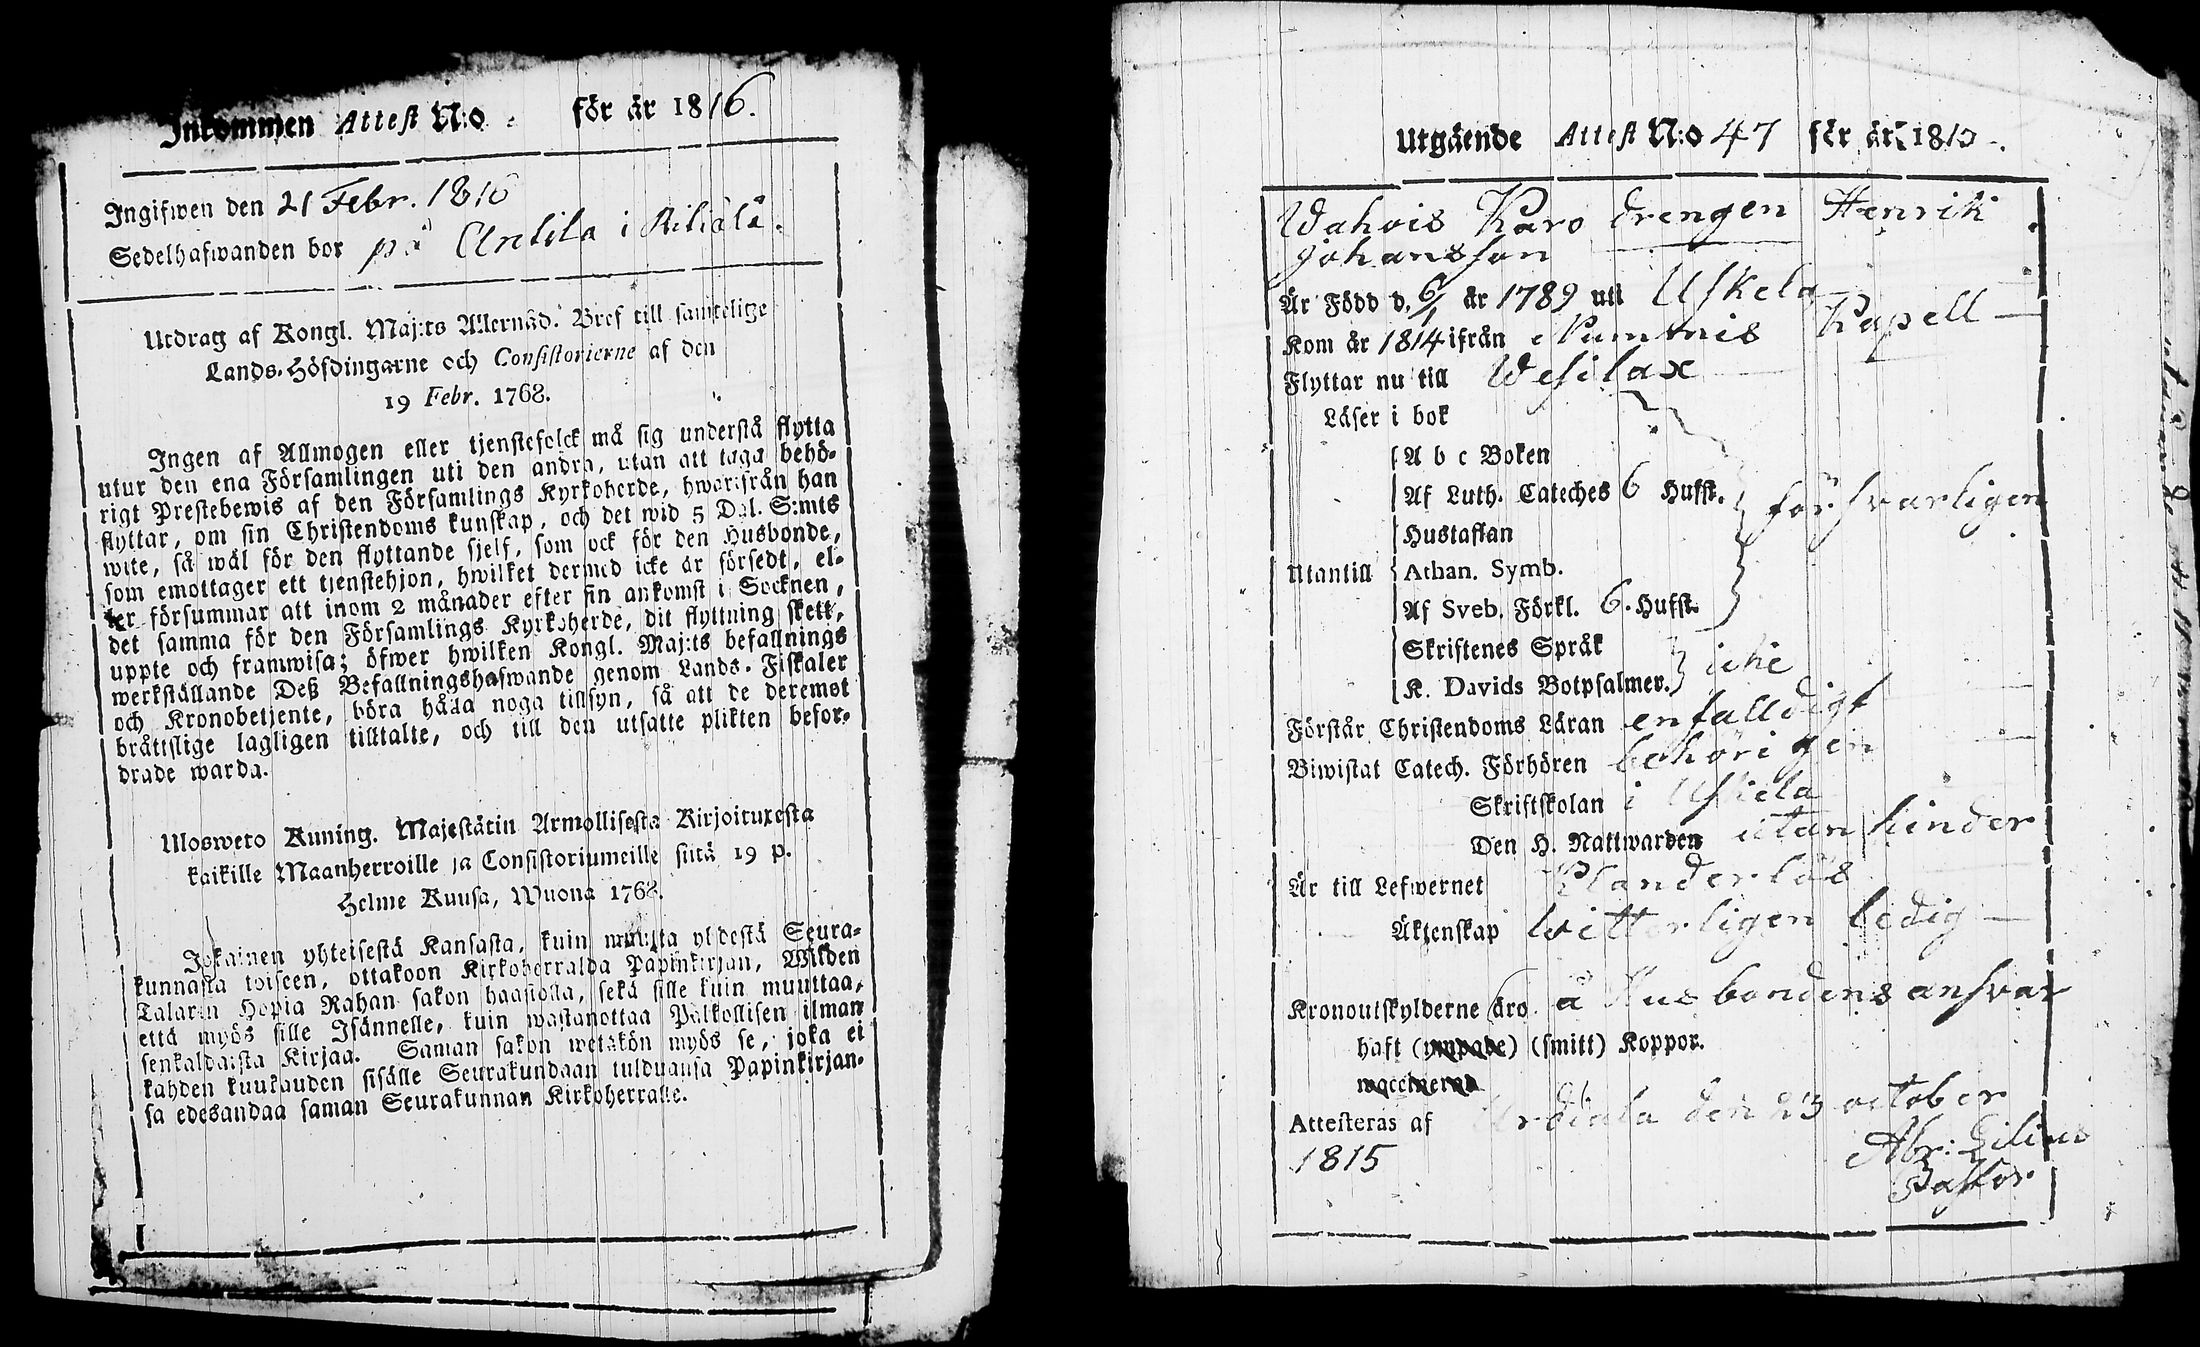 Inkommen Attest N:o för år 1816.
Ingifwen den 21 Febr. 1816
Sedelhafwanden bor på Anlila i
Utdrag af Kongl. Maj:ts Allernåd. Bref till samtelige
Lands-Höfdingarne och Consistorierne af den
19 Febr. 1768.
Ingen af Allmogen eller tjenstefolck må sig understå flytta
utur den ena Församlingen uti den andra, utan att taga behö-
rigt Prestebewis af den Församlings Kyrkoherde, hwarifrån han
flyttar, om sin Christendoms kunskap, och det wid 5 Dal. S:mts
wite, så wäl för den flyttande sjelf, som ock för den Husbonde,
som emottager ett tjenstehjon, hwilket dermed icke är försedt, el-
ler försummar att inom 2 månader efter sin ankomst i Socknen,
det samma för den Församlings Kyrkoherde, dit flyttning skett,
uppte och framwisa; öfwer hwilken Kongl. Maj:ts befallnings
werkställande Deß Befallningshafwande genom Lands-Fiskaler
och Kronobetjente, böra hålla noga tillsyn, så att de deremot
bråttslige lagligen tilltalte, och till den utsatte plikten befor-
drade warda.
Ulosweto Kuning. Majestätin Armollisesta Kirjoituxesta
kaikille Maanherroille ja Consistoriumeille siitä 19 p.
Helme Kuusa, Wuona 1768.
Jokainen yhteisestä Kansasta, kuin muutta yhdestä Seura-
kunnasta toiseen, ottakoon Kirkoherralda Papinkirjan, Wiiden
Talarin Hopia Rahan sakon haastolla, sekä sille kuin muuttaa,
että myös sille Isännelle, kuin wastanottaa Palkollisen ilman
senkaldaista Kirjaa. Saman sakon wetäkön myös se, joka ei
kahden kuukauden sisälle Seurakundaan tulduansa Papinkirjan-
sa edesandaa saman Seurakunnan Kirkoherralle.
Utgående Attest N:o 47 för år 1815.
Wahois Karo drengen Henrik
Johansson
Är Född d. 6/1 år 1789 uti Uskela
Kom år 1814 ifrån Kummis Kapell
Flyttar nu till Wesilax
Läser i bok
A b c Boken
Af Luth. Cateches 6 Hufst. försvarligen
Hustaflan
Utantill Athan. Symb.
Af Sveb. Förkl. 6. Hufst.
Skriftenes Språk
K. Davids Botpsalmer. icke
Förstår Christendoms Läran enfalldigt
Biwistat Catech. Förhören behörigen
Skriftskolan i Uskela
Den H. Nattwarden utan hinder
Är till Lefwernet Klanderlös
Äktenskap witterligen ledig
Kronoutskylderne äro å Husbondens ansvar
haft (ympade) (smitt) Koppor.
waccinerad
Attesteras af Urdiala den 23 october
1815 Abr: Lilius
Pastor